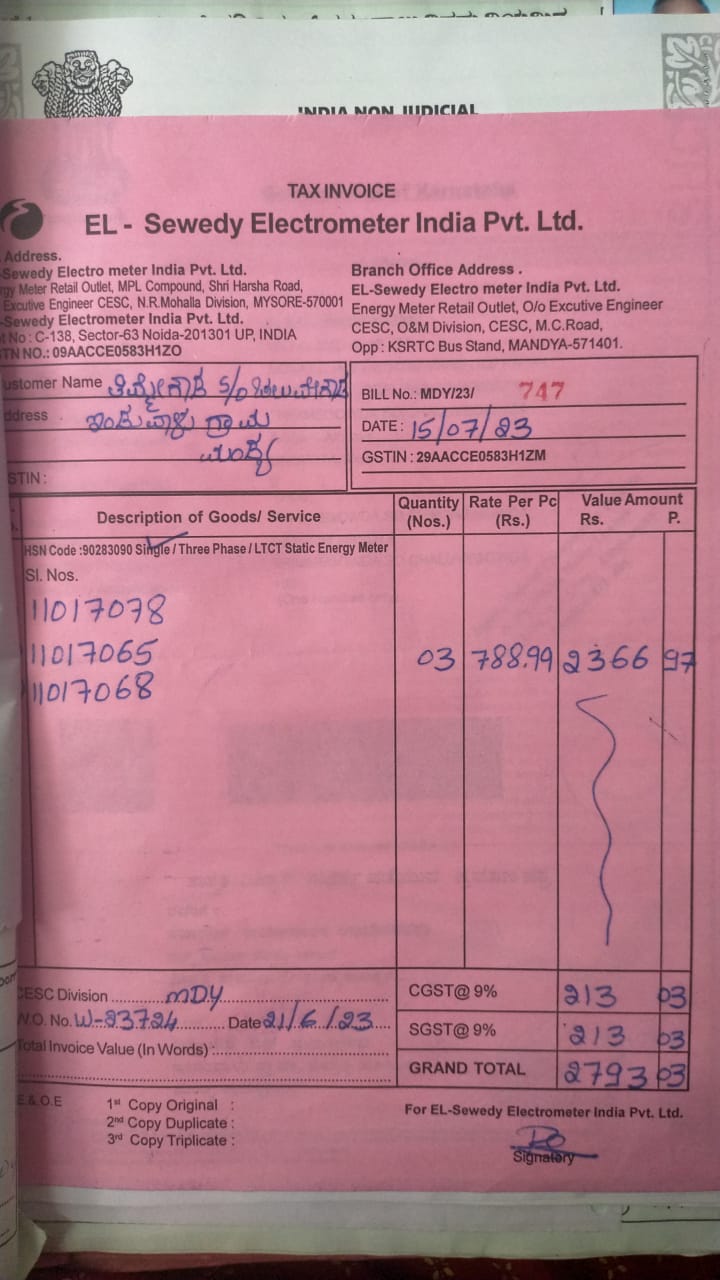 INDIA NON JUDICIAL
TAX INVOICE
EL - Sewedy Electrometer India Pvt. Ltd.
Address.
Sewedy Electro meter India Pvt. Ltd.
rgy Meter Retail Outlet, MPL Compound, Shri Harsha Road,
Excutive Engineer CESC, N.R.Mohalla Division, MYSORE-570001
-Sewedy Electrometer India Pvt. Ltd.
t No : C-138, Sector-63 Noida-201301 UP, INDIA
STN NO.: 09AACCE0583H1ZO
Branch Office Address .
EL-Sewedy Electro meter India Pvt. Ltd.
Energy Meter Retail Outlet, O/o Excutive Engineer
CESC, O&M Division, CESC, M.C.Road,
Opp : KSRTC Bus Stand, MANDYA-571401.
ustomer Name ತಿಮ್ಮೇಗೌಡ S/o
ddress ಇಂಡುವಾಳು ಗ್ರಾಮ
ಮಂಡ್ಯ
STIN :
BILL No.: MDY/23/ 747
DATE : 15/07/23
GSTIN : 29AACCE0583H1ZM
Description of Goods/ Service Quantity (Nos.) Rate Per Pc (Rs.) Value Amount Rs. P.
HSN Code :90283090 Single / Three Phase / LTCT Static Energy Meter
Sl. Nos.
11017078
11017065 03 788.99 2366 97
11017068
CESC Division MDY CGST@ 9% 213 03
W.O. No. W-23724 Date 21/6/23 SGST@ 9% 213 03
Total Invoice Value (In Words) : GRAND TOTAL 2793 03
E.& O.E
1st Copy Original :
2nd Copy Duplicate :
3rd Copy Triplicate :
For EL-Sewedy Electrometer India Pvt. Ltd.
Signatory